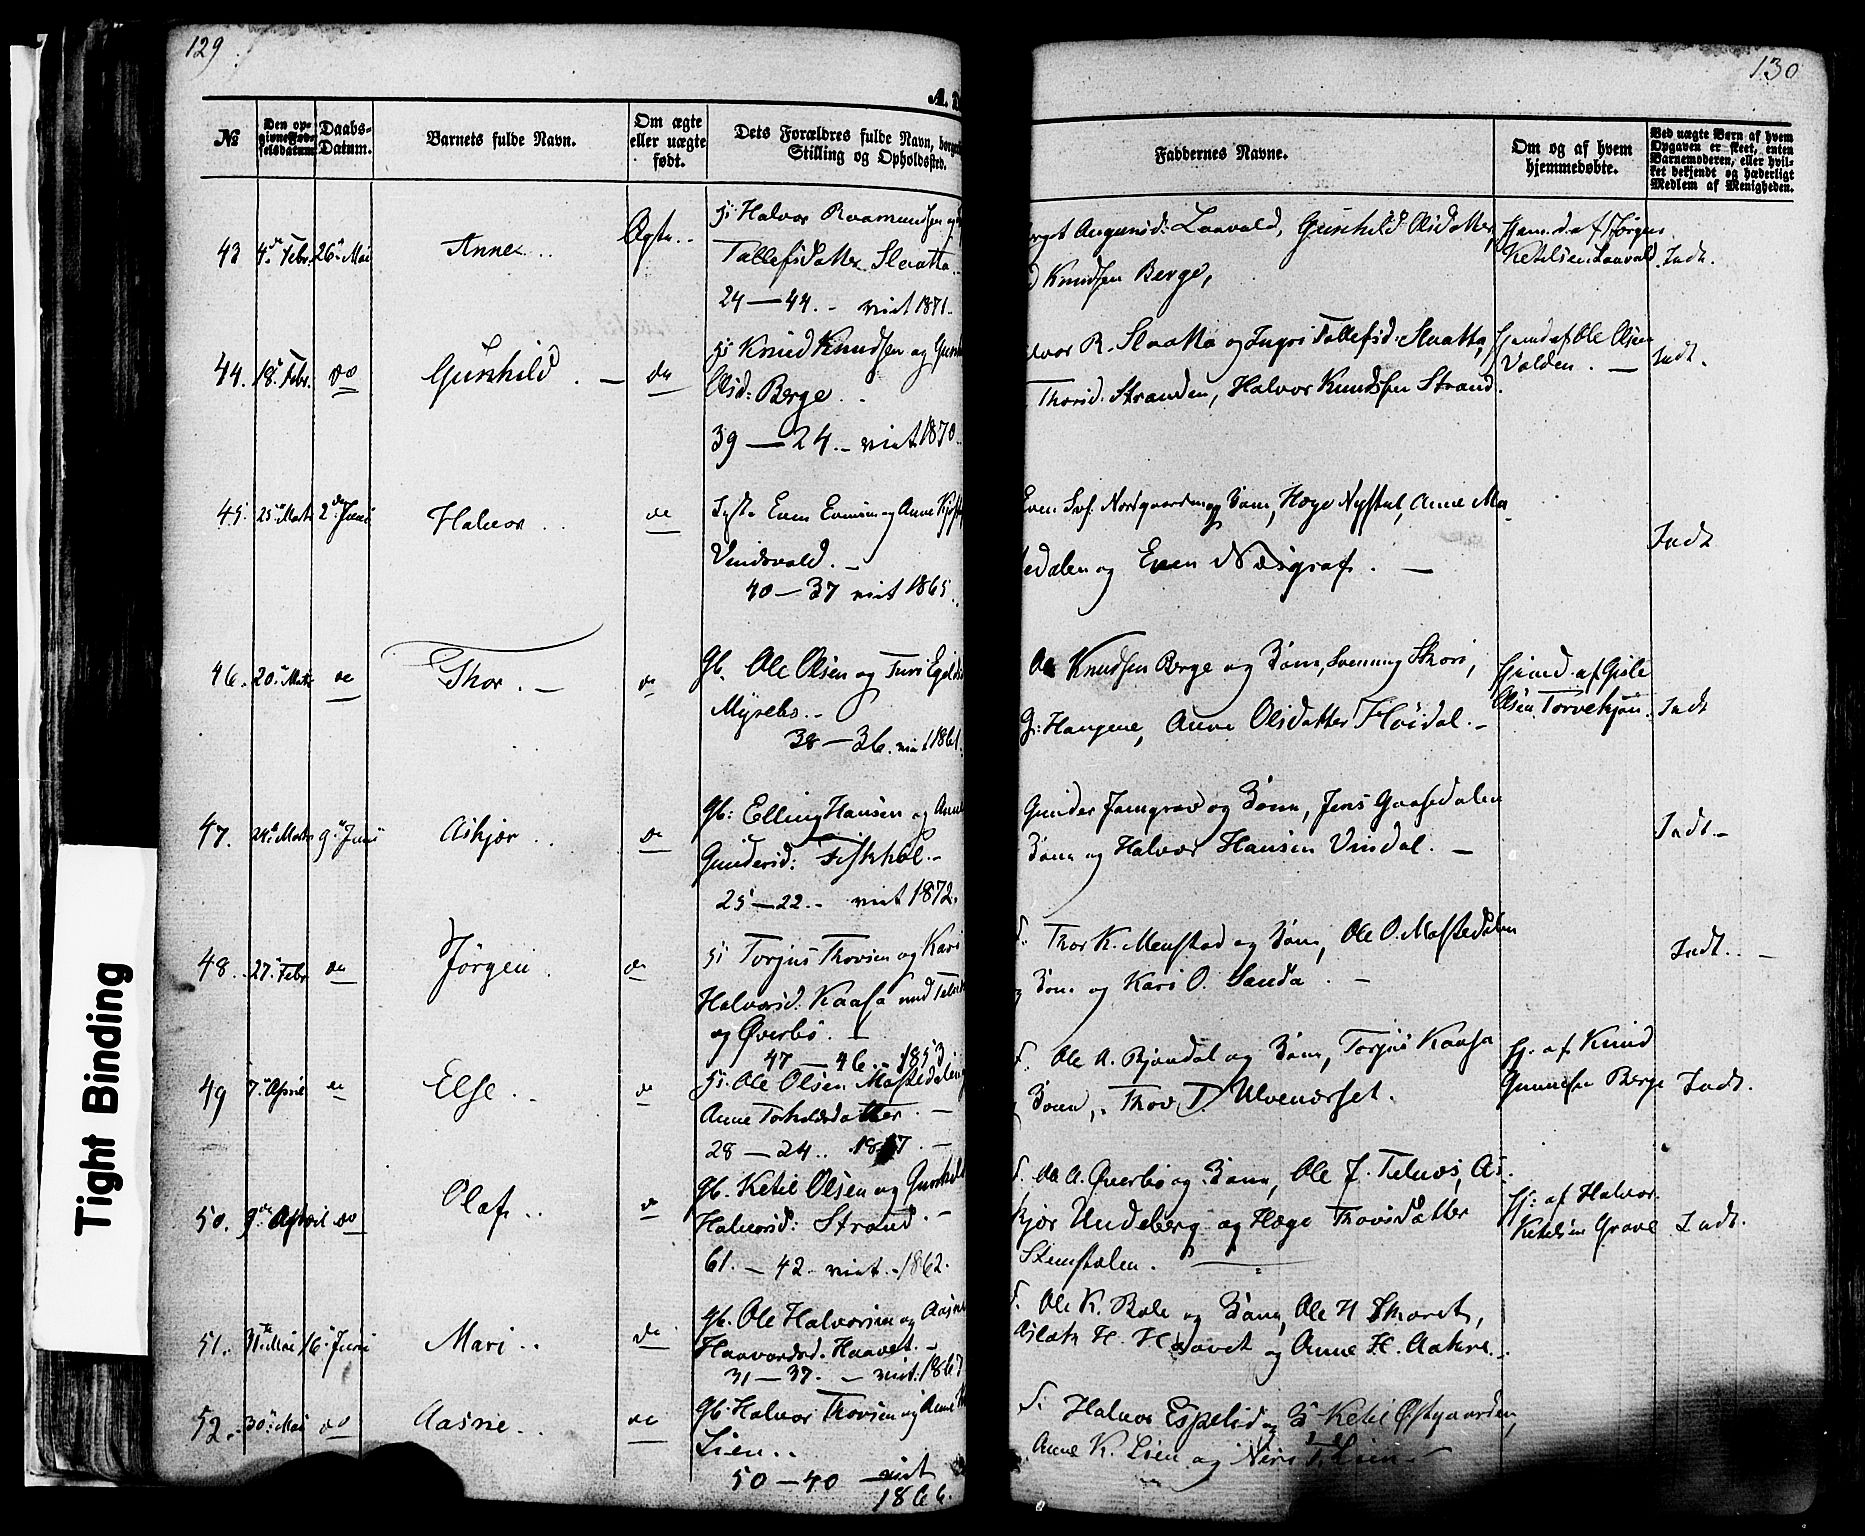 129
130
A. D
№
Den op-
givne Fød-
selsdatum
Daabs-
Datum.
Barnets fulde Navn.
Om ægte
eller uægte
født.
Dets Forældres fulde Navn, borger
Stilling og Opholdssted.
Faddernes Navne.
Om og af hvem
hjemmedøbte.
Ved uægte Børn af hvem
Opgaven er skeet, enten
Barnemoderen, eller hvil-
ket bekjendt og hæderligt
Medlem af Menigheden.
43 4de Febr. 26 Mai Anne Ægte Halvor Raamundsen og
Tollefsdatter Slaatta
24 — 44. — viet 1871.
Laavald, Gunhild Olsdatter
Knudsen Berge,
Hjemd. af Jørgen
Ketilsen Laavald. Indt.
44. 18 Febr. do Gunhild. — do Knud Knudsen og Gunh
Olsd: Berge
39 — 24. — viet 1870.
R. Slaatta og Ingri Tollefsd. Slaatta,
Thorsd. Stranden, Halvor Knudsen Strand.
Hjemd af Ole Olsen
Valden. — Indt.
45. 25 Marts 2den Juni Halvor do Even Evensen og Anne
Vindsvald. —
40 — 37 viet 1865.
Even Nordgaarden og Kone, Hæge Nystul, Anne Ma
dalen og Even Næsgraf. —
Indt
46. 20 Marts do Thor. — do Gb. Ole Olsen og Turi
Myrebø. —
38 — 36. viet 1861.
Knudsen Berge og Kone, Svenning Skori,
Haugene, Anne Olsdatter Fløidal. —
Hjemd. af Gisle
Olsen Torvehjøn. Indt
47. 24 Marts 9 Juni Askjær do Gb: Elling Hansen og Anne
Gundersd: Fiskhøl. —
25 — 22. — viet 1872.
Gunder Jamgrav og Kone, Jens Gaasedalen
Kone og Halvor Hansen Vindal. —
Indt. —
48. 27 Febr do Jørgen. do Torjus Thovsen og Kari
Halvorsd: Kaasa
og Øverbø. —
47 — 46. 1853
Thor K. Menstad og Kone, Ole O. Mastedalen
Kone og Kari O. Sanda. —
Indt. —
49 7 April do Else. do Ole Olsen Mastedalen
Anne Torkildsdatter. —
28 — 24.
Ole A. Bjøndal og Kone, Torjus Kaasa
Kone, Thov T. Ulvenæset.
Hj. af Knud
Gunnesen Berge Indt.
50. 9de April do Olaf. do Gb. Ketil Olsen og Gunhild
Halvorsd: Strand. —
61. — 42. viet. 1862.
A. Øverbø og Kone, Ole J. Telnæs, As
kjør Undeberg og Hæge Thovsdatter
Stemstølen.
Hj: af Halvor
Ketilsen Grave. Indt.
51. 31te Mai 16 Juni Mari. do Gb. Ole Halvorsen og Aasne
Haavardsd. Haavet. —
31 — 37. — viet. 1867
Ole K. Bøle og Kone, Ole H. Skoret,
Aslak H. Haavet og Anne H. Aakre. —
52. 30 Mai do Aasne. do Gb. Halvor Thovsen og Anne
Lien.
50 — 40 — viet
1866.
Halvor Espelid og K Ketil Østgaarden,
Anne K. Lien og T. Lien. —
Tight Binding